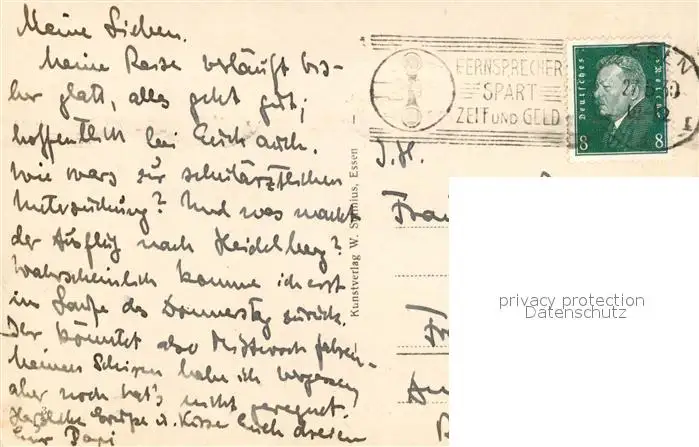 Meine Lieben.
Meine Reise verläuft bis-
her glatt, alles geht gut,
hoffentlich bei Euch auch.
Wie wars zur schulärztlichen
Untersuchung? Und was macht
der Ausflug nach Heidelberg?
Wahrscheinlich komme ich erst
im Laufe des Donnerstag zurück.
Ihr könntet also Mittwoch fahren.
Meinen Schirm habe ich vergessen,
aber noch hat's nicht geregnet.
Herzliche Grüße u. Küsse Euch dreien
Euer Papi
Kunstverlag W. Essen
FERNSPRECHER
SPART
ZEIT UND GELD
Deutsches
8 8
27
I.H.
Frau
privacy protection
Datenschutz